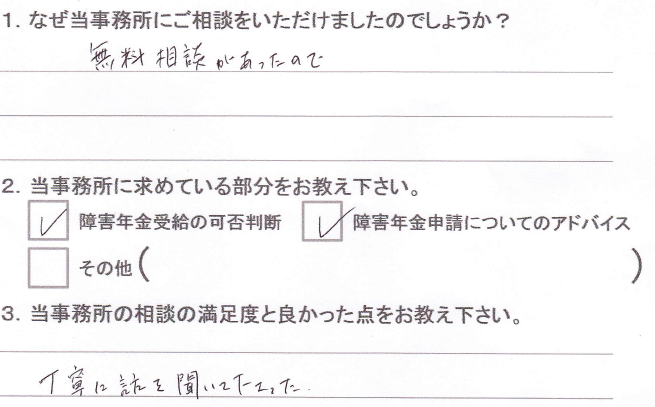 1. なぜ当事務所にご相談をいただけましたのでしょうか？
無料相談があったので
2. 当事務所に求めている部分をお教え下さい。
障害年金受給の可否判断 障害年金申請についてのアドバイス
その他（ ）
3. 当事務所の相談の満足度と良かった点をお教え下さい。
丁寧に話を聞いて下さった.